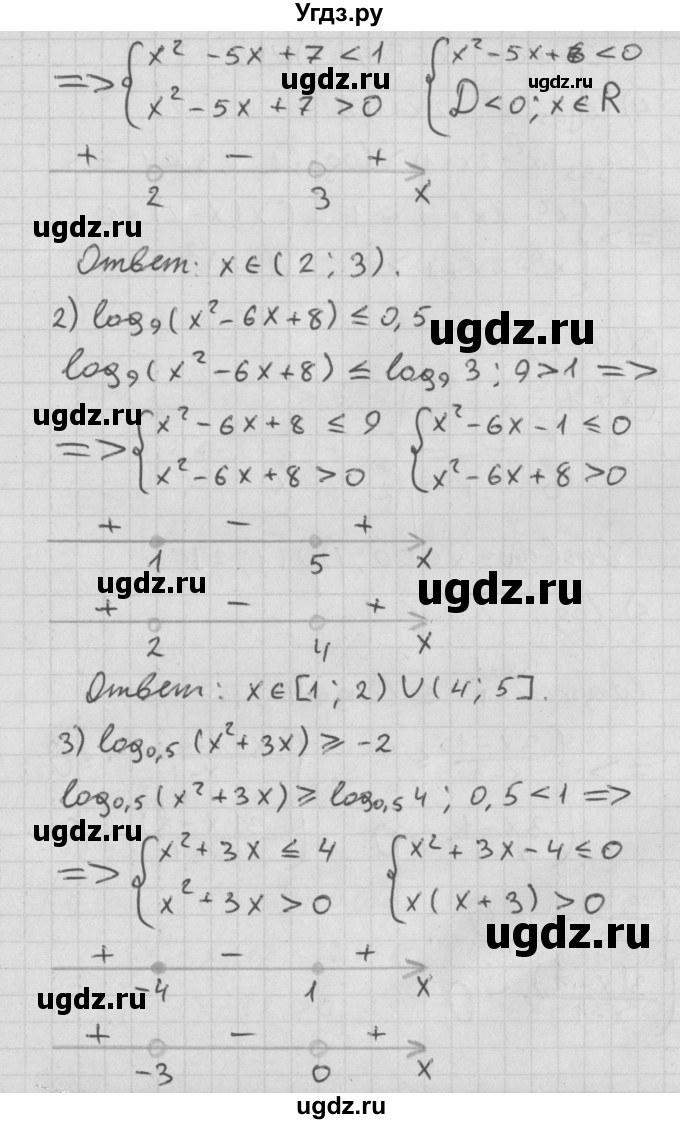 Угдз.ру
=> { x² - 5x + 7 < 1 { x² - 5x + 6 < 0
x² - 5x + 7 > 0 D < 0; x ∈ R
ugdz.ru ugdz.ru
+ - +
2 3 x
ugdz.ru
Ответ: x ∈ (2; 3).
2) log₉(x² - 6x + 8) ≤ 0,5
ugdz.ru
log₉(x² - 6x + 8) ≤ log₉ 3; 9 > 1 =>
=> { x² - 6x + 8 ≤ 9 { x² - 6x - 1 ≤ 0
ugdz.ru
x² - 6x + 8 > 0 x² - 6x + 8 > 0
+ - +
1 5 x
ugdz.ru ugdz.ru
+ - +
2 4 x
Ответ: x ∈ [1; 2) ∪ (4; 5].
3) log₀,₅ (x² + 3x) ≥ -2
ugdz.ru
log₀,₅ (x² + 3x) ≥ log₀,₅ 4; 0,5 < 1 =>
ugdz.ru
=> { x² + 3x ≤ 4 { x² + 3x - 4 ≤ 0
x² + 3x > 0 x(x + 3) > 0
ugdz.ru
+ - +
-4 1 x
ugdz.ru
+ - +
-3 0 x
ugdz.ru